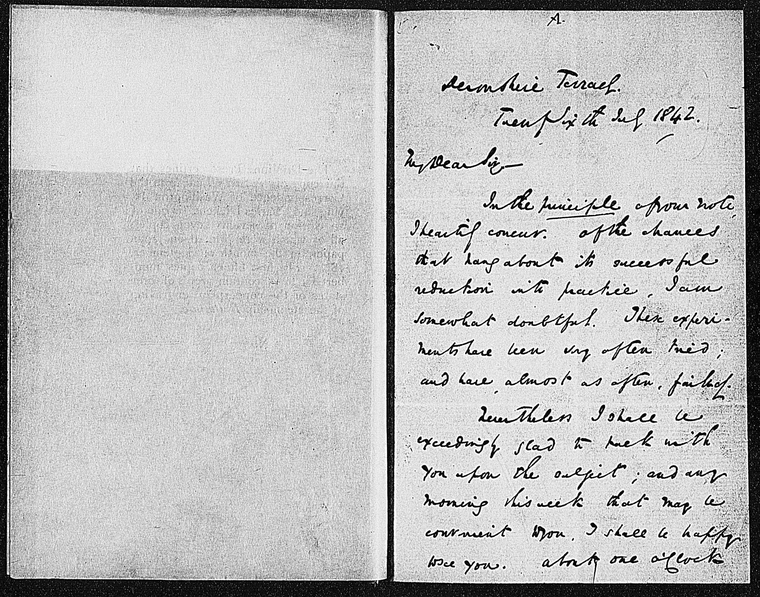 A
Devonshire Terrace.
Twenty Sixth July 1842.
My Dear Sir,—
In the principle of your note,
I heartily concur. Of the chances
that hang about its successful
reduction into practice, I am
somewhat doubtful. These experi-
ments have been very often tried;
and have, almost as often, failed.
Nevertheless I shall be
exceedingly glad to speak with
you upon the subject; and any
morning this week that may be
convenient to you, I shall be happy
to see you. about one o'Clock